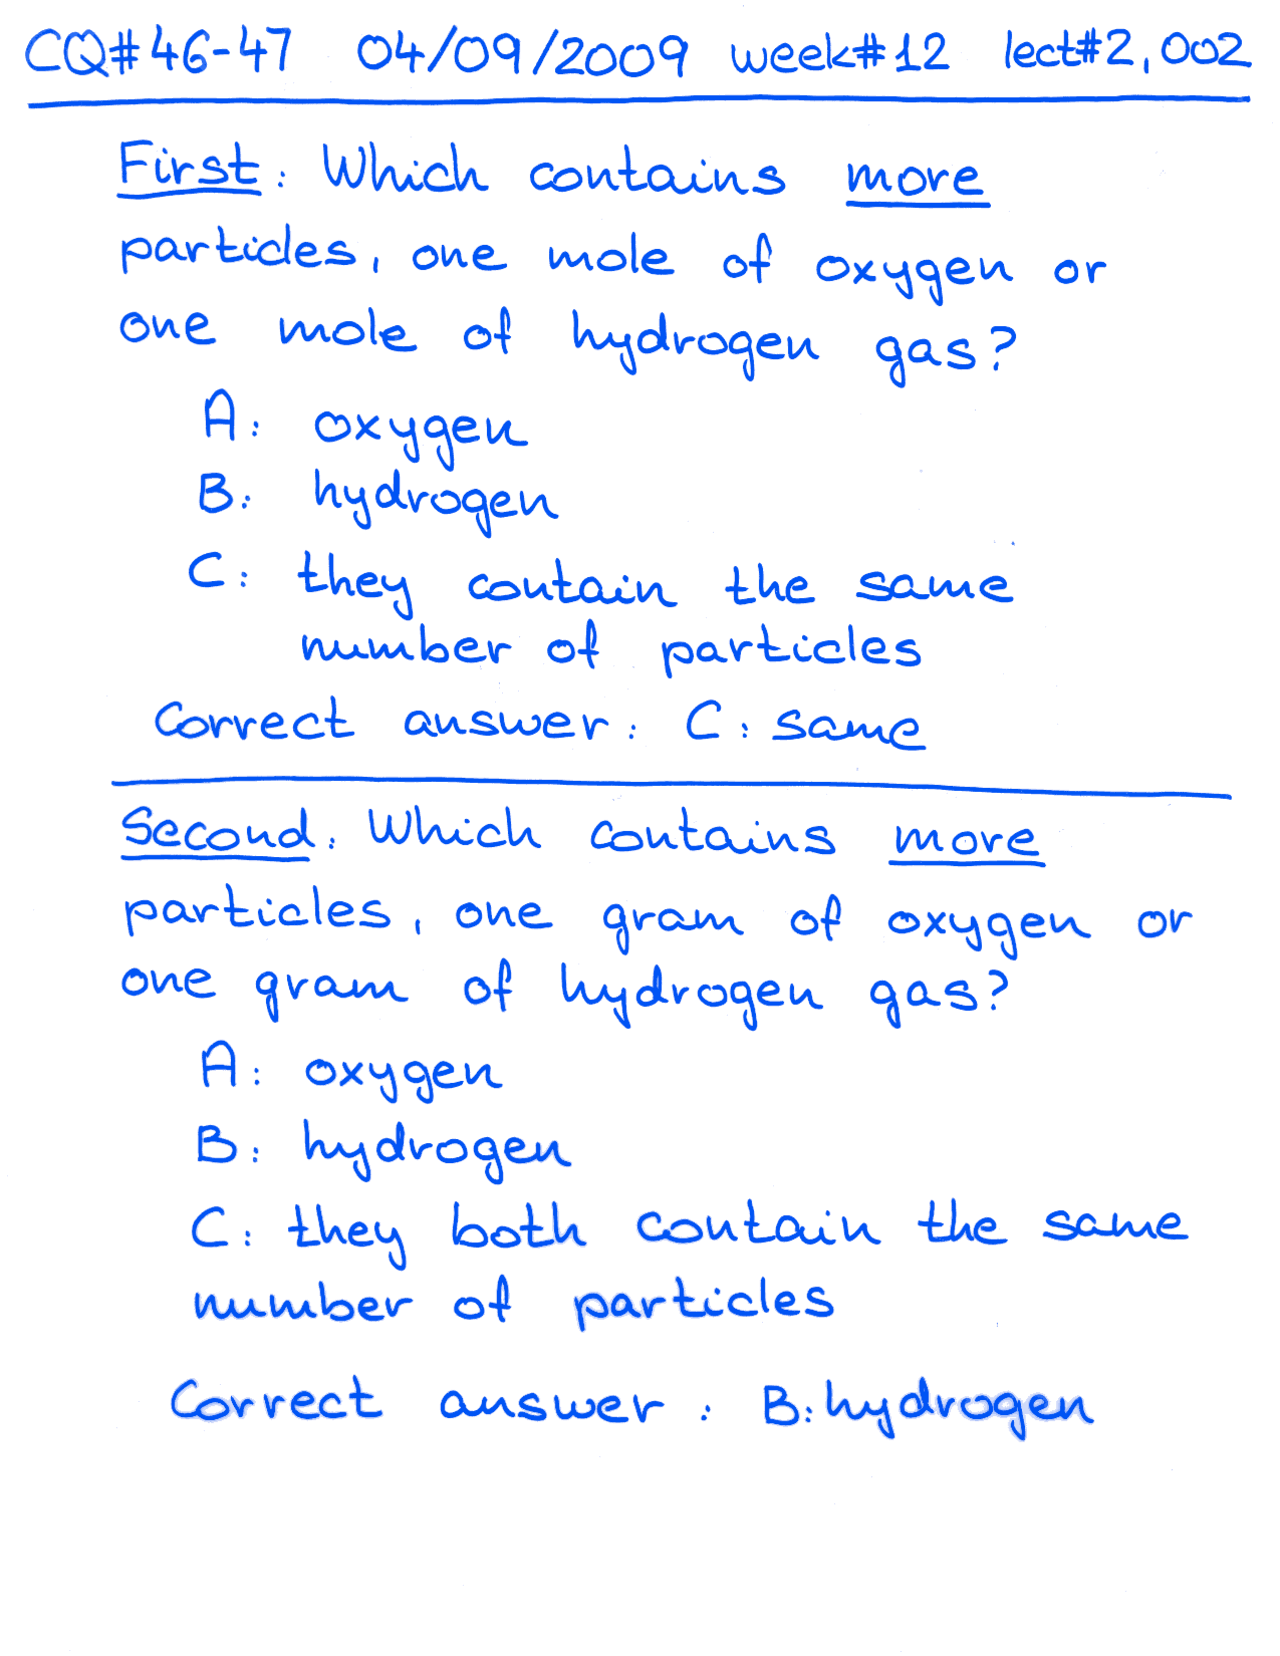 CQ#46-47 04/09/2009 week#12 lect#2,002
First: Which contains more
particles, one mole of oxygen or
one mole of hydrogen gas?
A: oxygen
B: hydrogen
C: they contain the same
number of particles
Correct answer: C: same
Second: Which contains more
particles, one gram of oxygen or
one gram of hydrogen gas?
A: oxygen
B: hydrogen
C: they both contain the same
number of particles
Correct answer: B: hydrogen